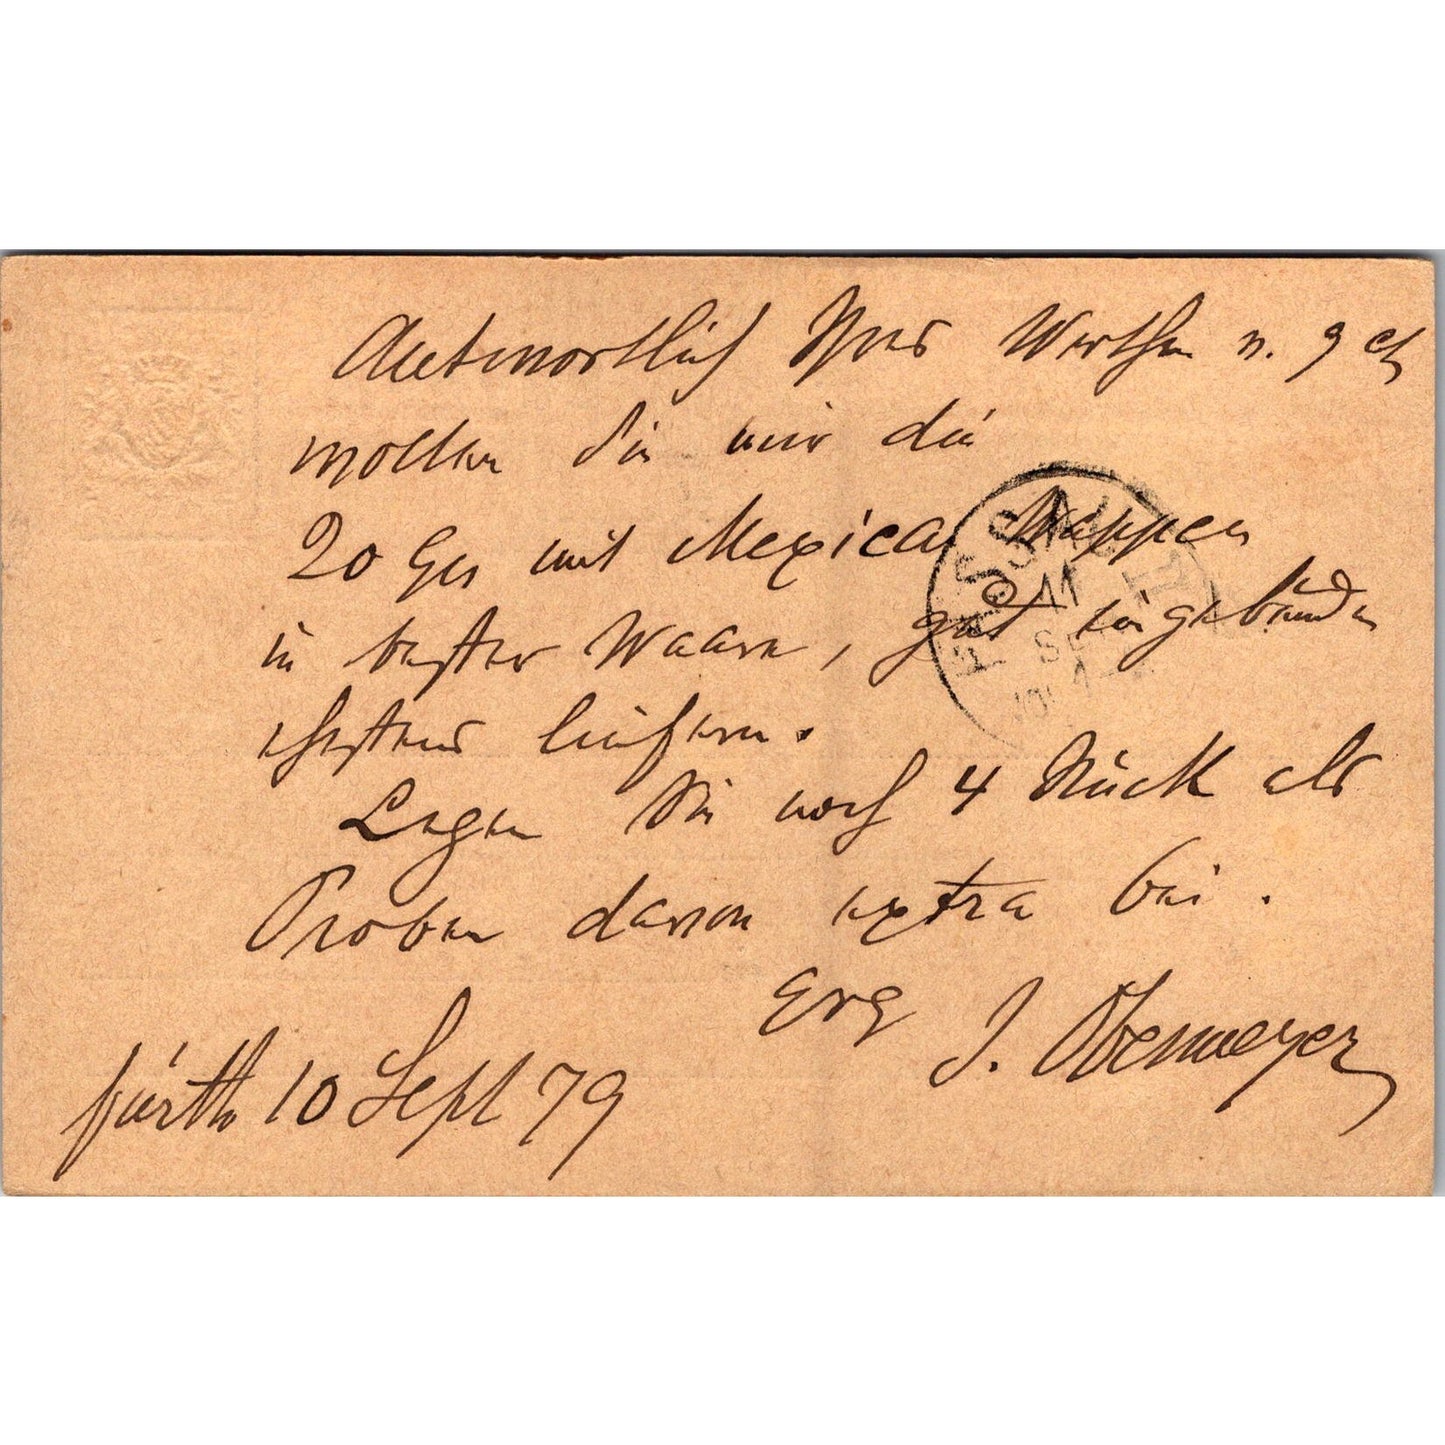 Antwortlich Ihres Werthen v. 9 ct
wollen Sie mir die
20 Grs mit Mexican Wappen
in bester Waare, gut eingebunden
ehestens liefern.
Legen Sie noch 4 Stück als
Proben davon extra bei.
Erg J. Obermeyer
fürth 10 Sept 79
11
SE